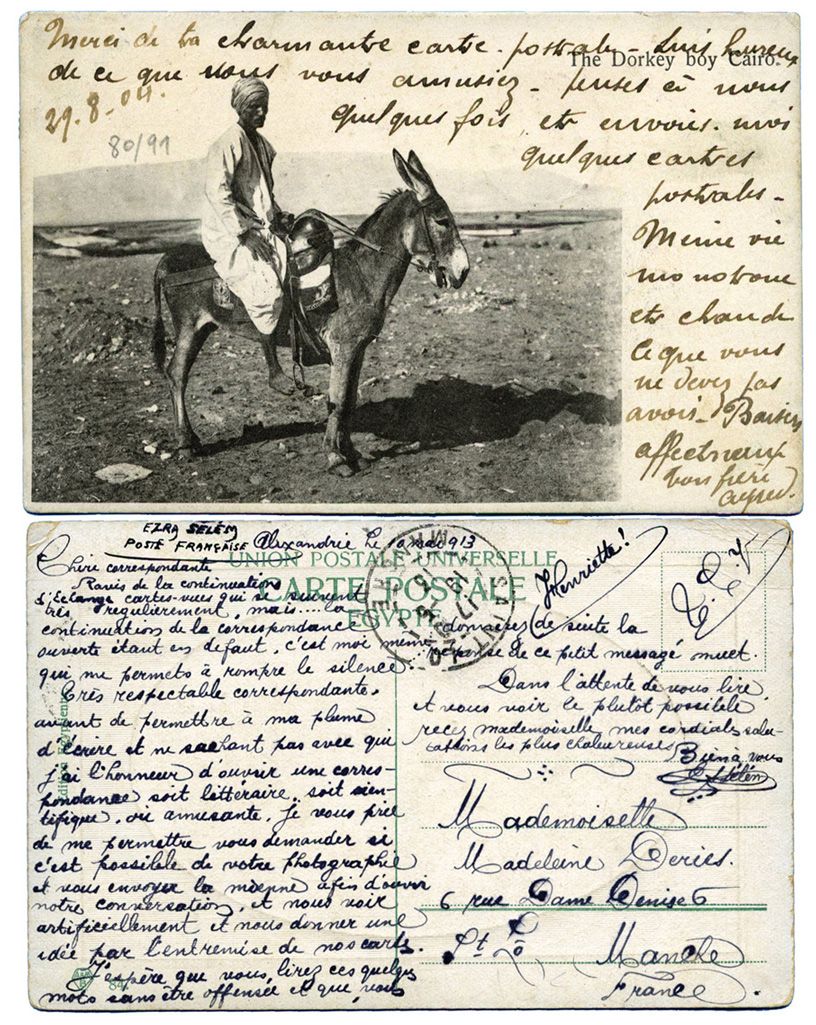 Merci de ta charmante carte-postale - suis heureux
The Donkey boy Cairo.
de ce que vous vous amusiez - penses à nous
29.8.04.
quelques fois et envoies-moi
80/91
quelques cartes
postales -
Même vie
monotone
et chaude
ce que vous
ne devez pas
avoir - Baisers
affectueux
ton frère
EZRA SÉLÉM
POSTE FRANÇAISE
Alexandrie le 10 mai 913
UNION POSTALE UNIVERSELLE
CARTE POSTALE
EGYPTE
Chère correspondante
Ravis de la continuation
d'échange cartes-vues qui se suivent
très regulierement, mais.... la
continuation de la correspondance
ouverte étant en defaut, c'est moi même
qui me permets à rompre le silence.
Très respectable correspondante,
avant de permettre à ma plume
d'écrire et ne sachant pas avec qui
j'ai l'honneur d'ouvrir une corres-
pondance soit littéraire, soit scien-
tifique, ou amusante, Je vous prie
de me permettre vous demander si
c'est possible de votre photographie
et vous envoyer la mienne afin d'ouvrir
notre conversation, et nous voir
artificiellement et nous donner une
idée par l'entremise de nos carts.
J'espère que vous lirez ces quelques
mots sans être offensée et que, vous
84
Henriette!
T.C.V
donnerez de suite la
reponse de ce petit messagé muet.
Dans l'attente de vous lire
et vous voir le plutôt possible
recez mademoiselle, mes cordials salu-
tations les plus chaleureuses
Bien à vous
E Sélém
Mademoiselle
Madeleine Deries.
6 rue Dame Denise 6
St Lo
Manche
France